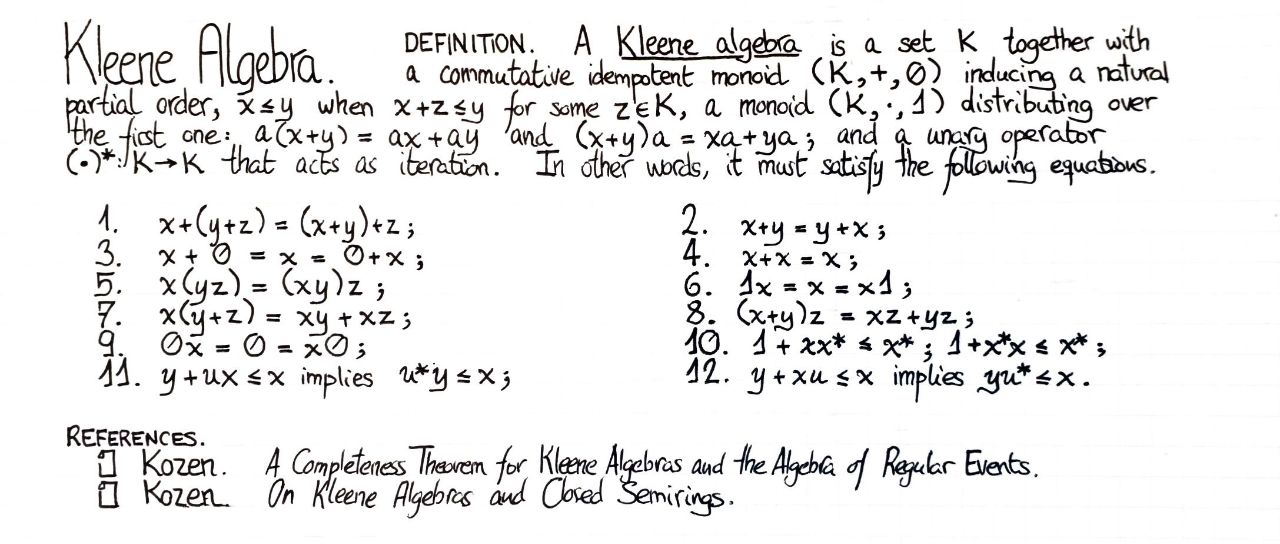 Kleene Algebra. DEFINITION. A Kleene algebra is a set K together with
a commutative idempotent monoid (K,+,0) inducing a natural
partial order, x≤y when x+z≤y for some z∈K, a monoid (K,·,1) distributing over
the first one: a(x+y) = ax+ay and (x+y)a = xa+ya; and a unary operator
(•)*: K→K that acts as iteration. In other words, it must satisfy the following equations.
1. x+(y+z) = (x+y)+z;
2. x+y = y+x;
3. x+0 = x = 0+x;
4. x+x = x;
5. x(yz) = (xy)z;
6. 1x = x = x1;
7. x(y+z) = xy+xz;
8. (x+y)z = xz+yz;
9. 0x = 0 = x0;
10. 1+xx* ≤ x*; 1+x*x ≤ x*;
11. y+ux ≤ x implies u*y ≤ x;
12. y+xu ≤ x implies yu* ≤ x.
REFERENCES.
▯ Kozen. A Completeness Theorem for Kleene Algebras and the Algebra of Regular Events.
▯ Kozen. On Kleene Algebras and Closed Semirings.